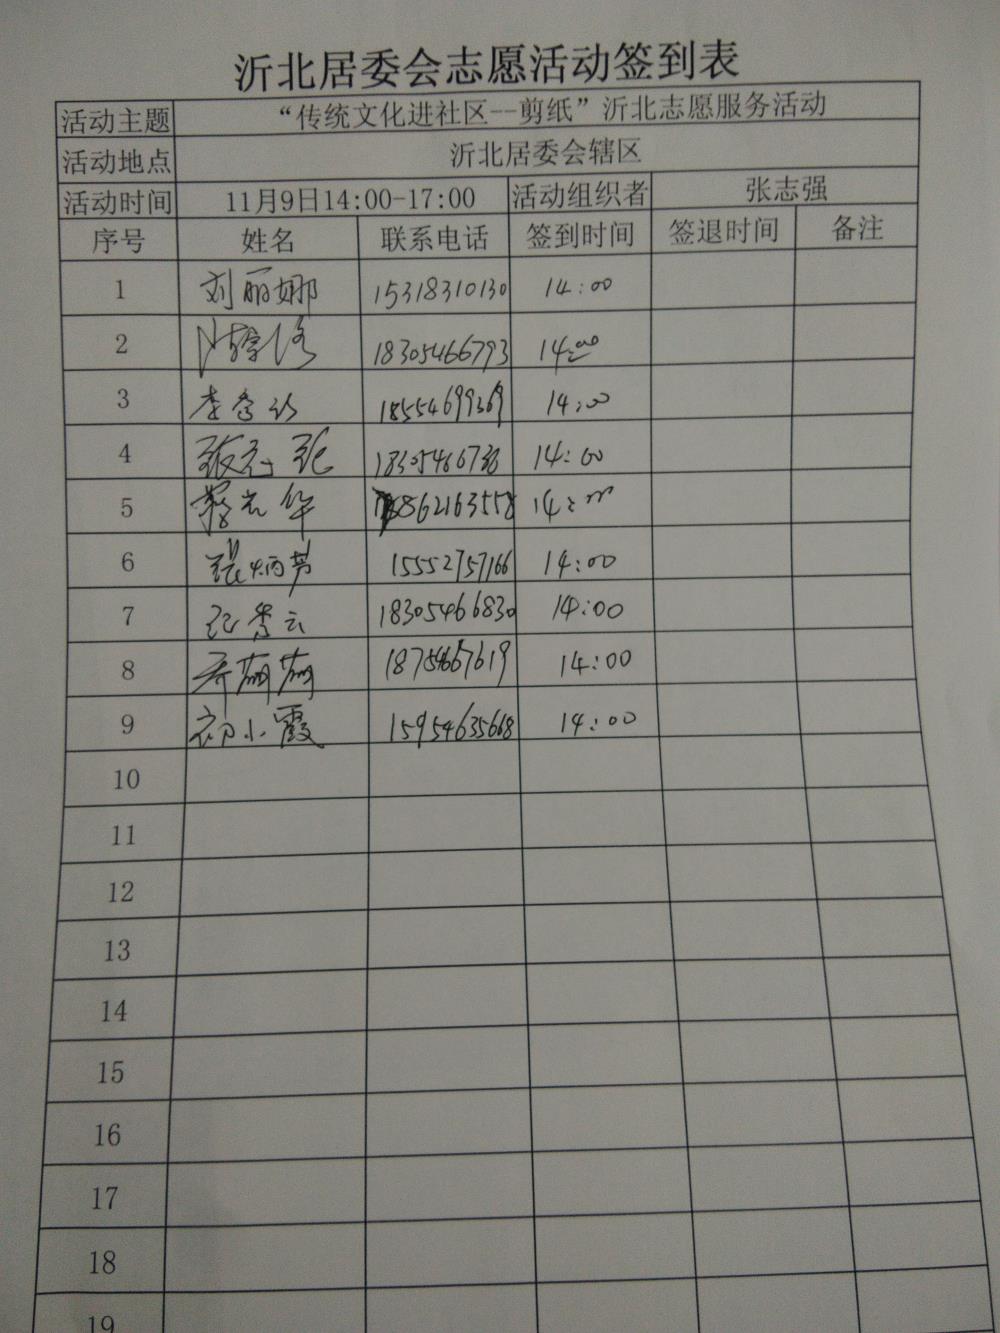 沂北居委会志愿活动签到表
活动主题 “传统文化进社区--剪纸”沂北志愿服务活动
活动地点 沂北居委会辖区
活动时间 11月9日14:00-17:00 活动组织者 张志强
序号 姓名 联系电话 签到时间 签退时间 备注
1 刘丽娜 15318310130 14:00
2 18305466793 14:00
3 18554699369 14:00
4 14:00
5 14:00
6 15552757166 14:00
7 18305466830 14:00
8 14:00
9 小霞 15954635668 14:00
10
11
12
13
14
15
16
17
18
19